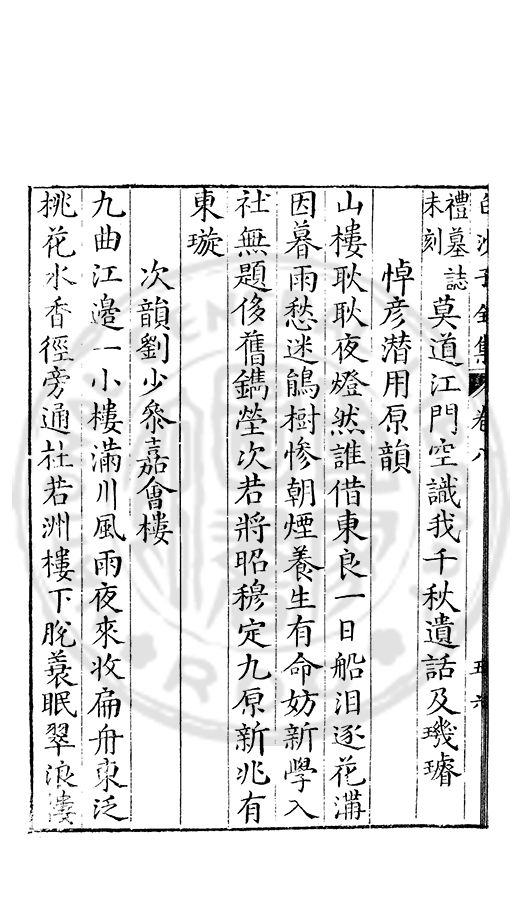 白沙子全集 卷八 五六
禮墓誌
未刻
莫道江門空識我千秋遺話及璣璿
悼彥潛用原韻
山樓耿耿夜燈然誰借東良一日船泪逐花溝
因暮雨愁迷鵑樹慘朝煙養生有命妨新學入
社無題侈舊鐫塋次若將昭穆定九原新兆有
東璇
次韻劉少參嘉會樓
九曲江邊一小樓滿川風雨夜來收扁舟東泛
桃花水香徑旁通杜若洲樓下脫蓑眠翠浪樓